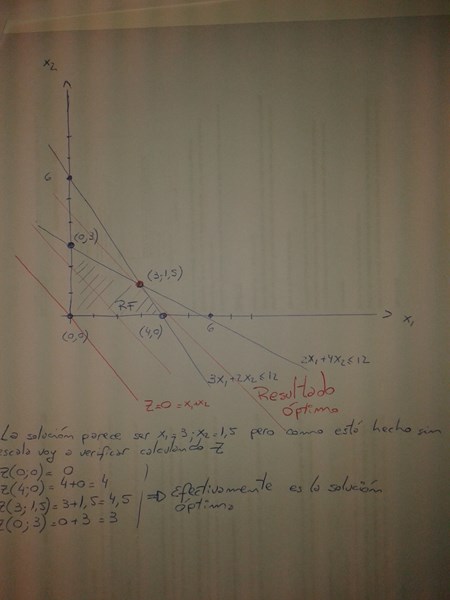 x₂
6
(0,3)
(3;1,5)
RF
(0,0)
(4,0)
6
x₁
2x₁+4x₂≤12
3x₁+2x₂≤12
Resultado
óptimo
Z=0=x₁+x₂
La solución parece ser x₁=3; x₂=1,5 pero como está hecho sin
escala voy a verificar calculando Z
Z(0;0)= 0
Z(4;0)= 4+0= 4
Z(3;1,5)=3+1,5=4,5 ⇒ Efectivamente es la solución
óptima
Z(0;3)=0+3 = 3